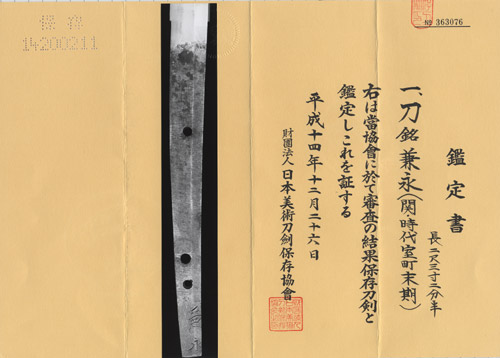 № 363076
鑑定書
一、刀 銘 兼永(関・時代室町末期)
長二尺三寸二分半
右は當協會に於て審査の結果保存刀剣と
鑑定しこれを証する
平成十四年十二月二十六日
財團法人 日本美術刀剣保存協會
保存
14200211